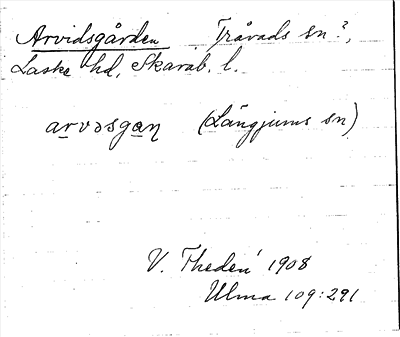 Arvidsgården Tråvads sn?,
Laske hd, Skarab. l.
arvəsgaɳ (Längjums sn)
V. Thedén 1908
Ulma 109:291